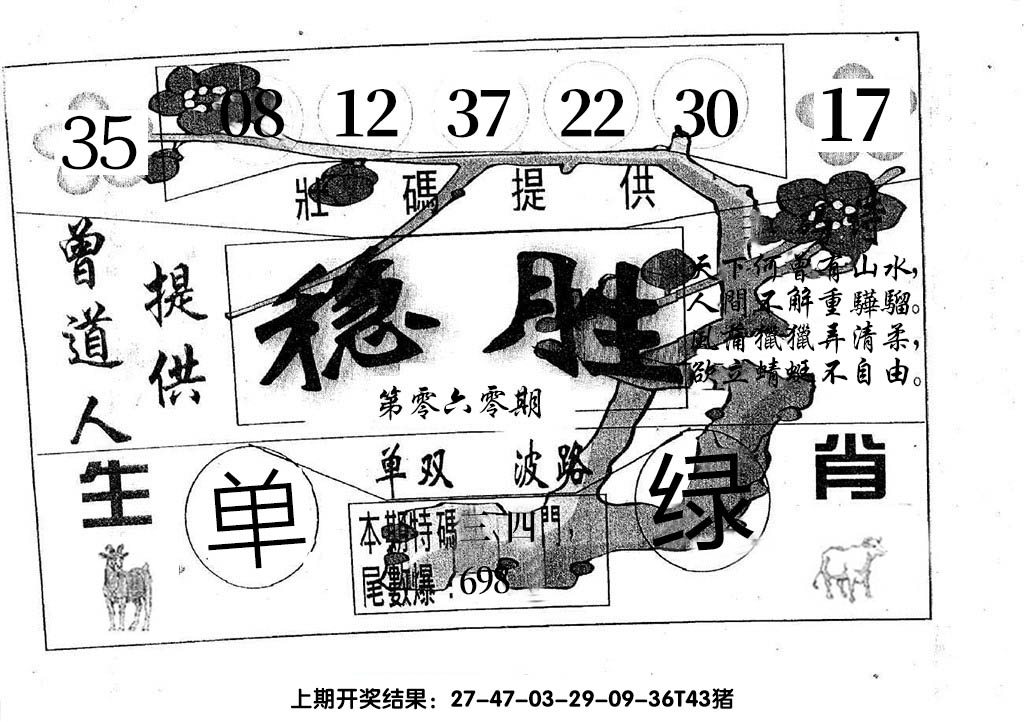 35 08 12 37 22 30 17
壯碼提供
曾道人
提供
稳胜
第零六零期
特
天下何曾有山水，
人間不解重驊騮。
風蒲獵獵弄清柔，
欲立蜻蜓不自由。
生肖
单双 波路
单
绿
本期特碼三、四門，
尾數爆：698
上期开奖结果：27-47-03-29-09-36T43猪